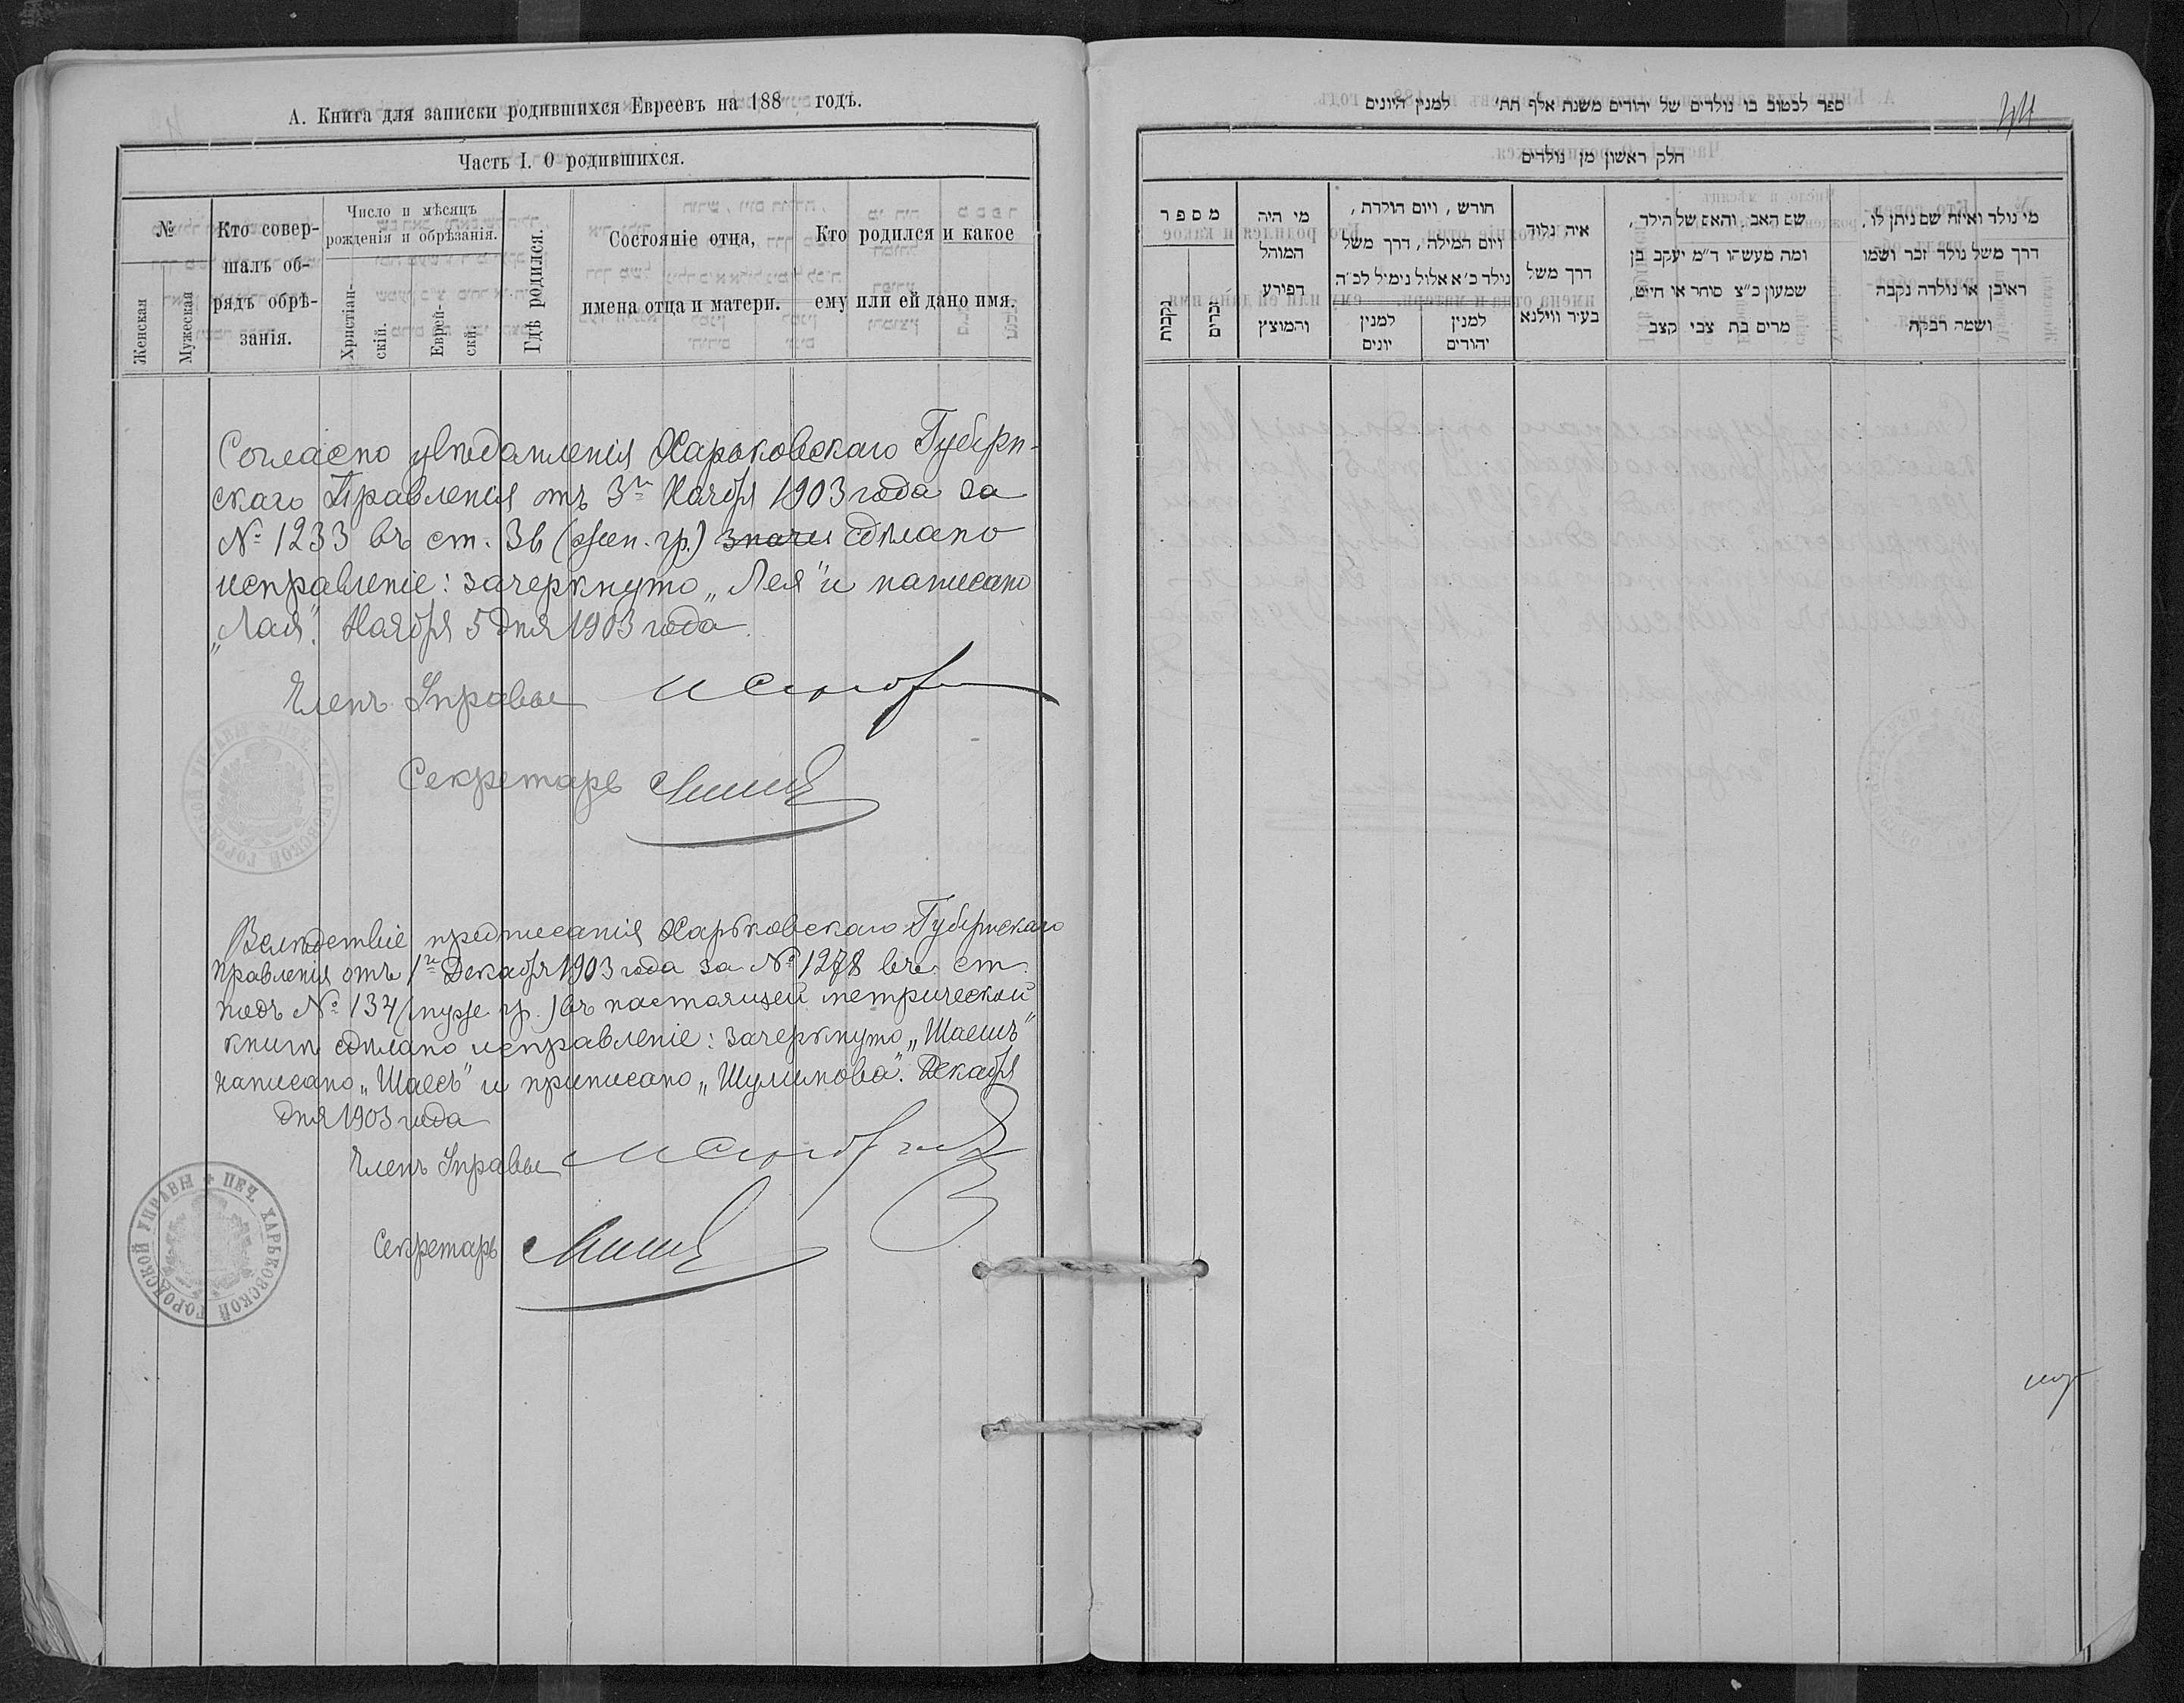 А. Книга для записки родившихся Евреевъ на 188 годъ.
Часть I. О родившихся.
№
Женская
Мужеская
Кто совер-
шалъ об-
рядъ обрѣ-
занія.
Число и мѣсяцъ
рожденія и обрѣзанія.
Христіан-
скій.
Еврей-
скій.
Гдѣ родился.
Состояніе отца,
имена отца и матери.
Кто родился и какое
ему или ей дано имя.
Согласно увѣдомленія Харьковскаго Губерн-
скаго Правленія отъ 3го Ноября 1903 года за
№ 1233 въ ст. 36 (жен. гр.) сдѣлано
исправленіе: зачеркнуто „Лея" и написано
„Лая". Ноября 5 дня 1903 года.
Членъ Управы
Секретарь
ПЕЧ. ХАРЬКОВСКОЙ ГОРОДСКОЙ УПРАВЫ
Вслѣдствіе предписанія Харьковскаго Губернскаго
Правленія отъ 1го Декабря 1903 года за № 1278 въ ст.
подъ № 134 (муже. гр.) въ настоящей метрической
книгѣ сдѣлано исправленіе: зачеркнуто „Шаешъ"
написано „Шаесъ" и приписано „Шулимова". Декабря
дня 1903 года
Членъ Управы
Секретарь
ПЕЧ. ХАРЬКОВСКОЙ ГОРОДСКОЙ УПРАВЫ
ספר לכטוב בו נולדים של יהודים משנת אלף תת׳ למנין היונים
44
חלק ראשון מן נולדים
מי נולד ואיזה שם ניתן לו,
דרך משל נולד זכר ושמו
ראובן או נולדה נקבה
ושמה רבקה
שם האב, והאם של הילד,
ומה מעשהו ד״מ יעקב בן
שמעון כ״צ סוחר או חייט,
מרים בת צבי קצב
איה נלוד
דרך משל
בעיר ווילנא
חורש, ויום הולדת,
ויום המילה, דרך משל
נולד כ׳א אלול נימיל לכ״ה
למנין
יהודים
למנין
יונים
מי היה
המוהל
הפירע
והמוצץ
מספר
זכרים
נקבות